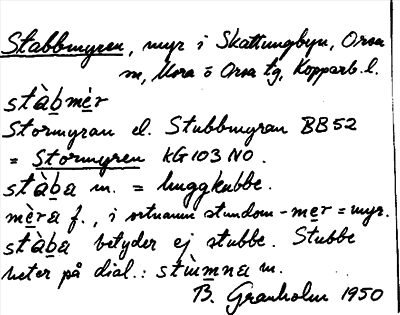 Stabbmyren, myr i Skattungbyn, Orsa
m, Mora o Orsa tg, Kopparb. l.
stàbmèr
Stormyran el. Stubbmyran BB52
= Stormyren KG 103 NO.
stàba m. = huggkubbe.
mèra f., i ortnamn stundom -mer = myr.
stàba betyder ej stubbe. Stubbe
heter på dial.: stùmna m.
B. Granholm 1950